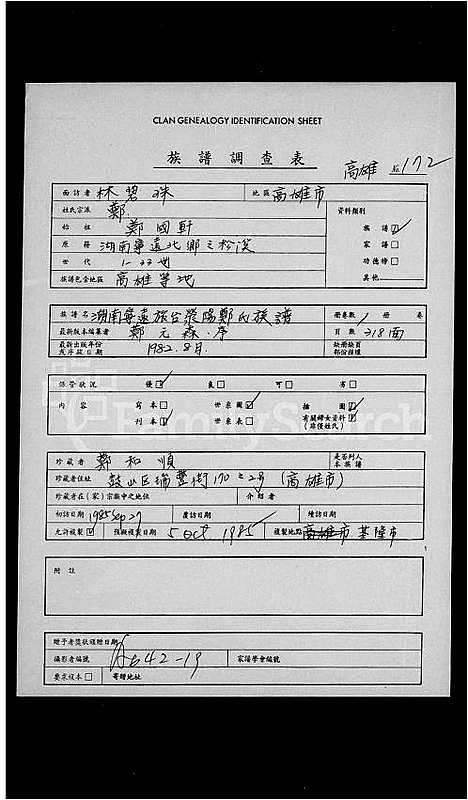 CLAN GENEALOGY IDENTIFICATION SHEET
族譜調查表 高雄 172
面訪者 林碧珠 地區 高雄市
姓氏宗派 鄭 資料類別
始祖 鄭國軒 族譜☑
原籍 湖南寧遠北鄉 家譜□
世代 1-33世 功德榜□
族譜包含地區 高雄等地 其他
族譜名 湖南寧遠族台滎陽鄭氏族譜 冊卷數 1 冊 卷
最新版本編纂者 鄭元森.序 頁數 318面
最新出版年份及序跋日期 1982.8月. 缺冊缺頁部份描標
保管狀況 優☑ 良□ 可□ 劣□
內容 寫本□ 世系圖☑ 插圖☑
刊本☑ 世系表□ 有關婦女資料☑(非僅姓氏)
珍藏者 鄭和順 是否列入本族譜
珍藏者住址 鼓山區瑞豐街170之2号(高雄市)
珍藏者在(家)宗族中之地位 介紹者
初訪日期 1985 Sep 27 廣訪日期 續訪日期
允許複製☑ 預擬複製日期 5 oct 1985 複製地點 高雄市 基隆市
附註
贈予者獎狀頒贈日期
攝影者編號 A642-19 家譜學會編號
要求複本□ 寄贈地址
FamilySearch